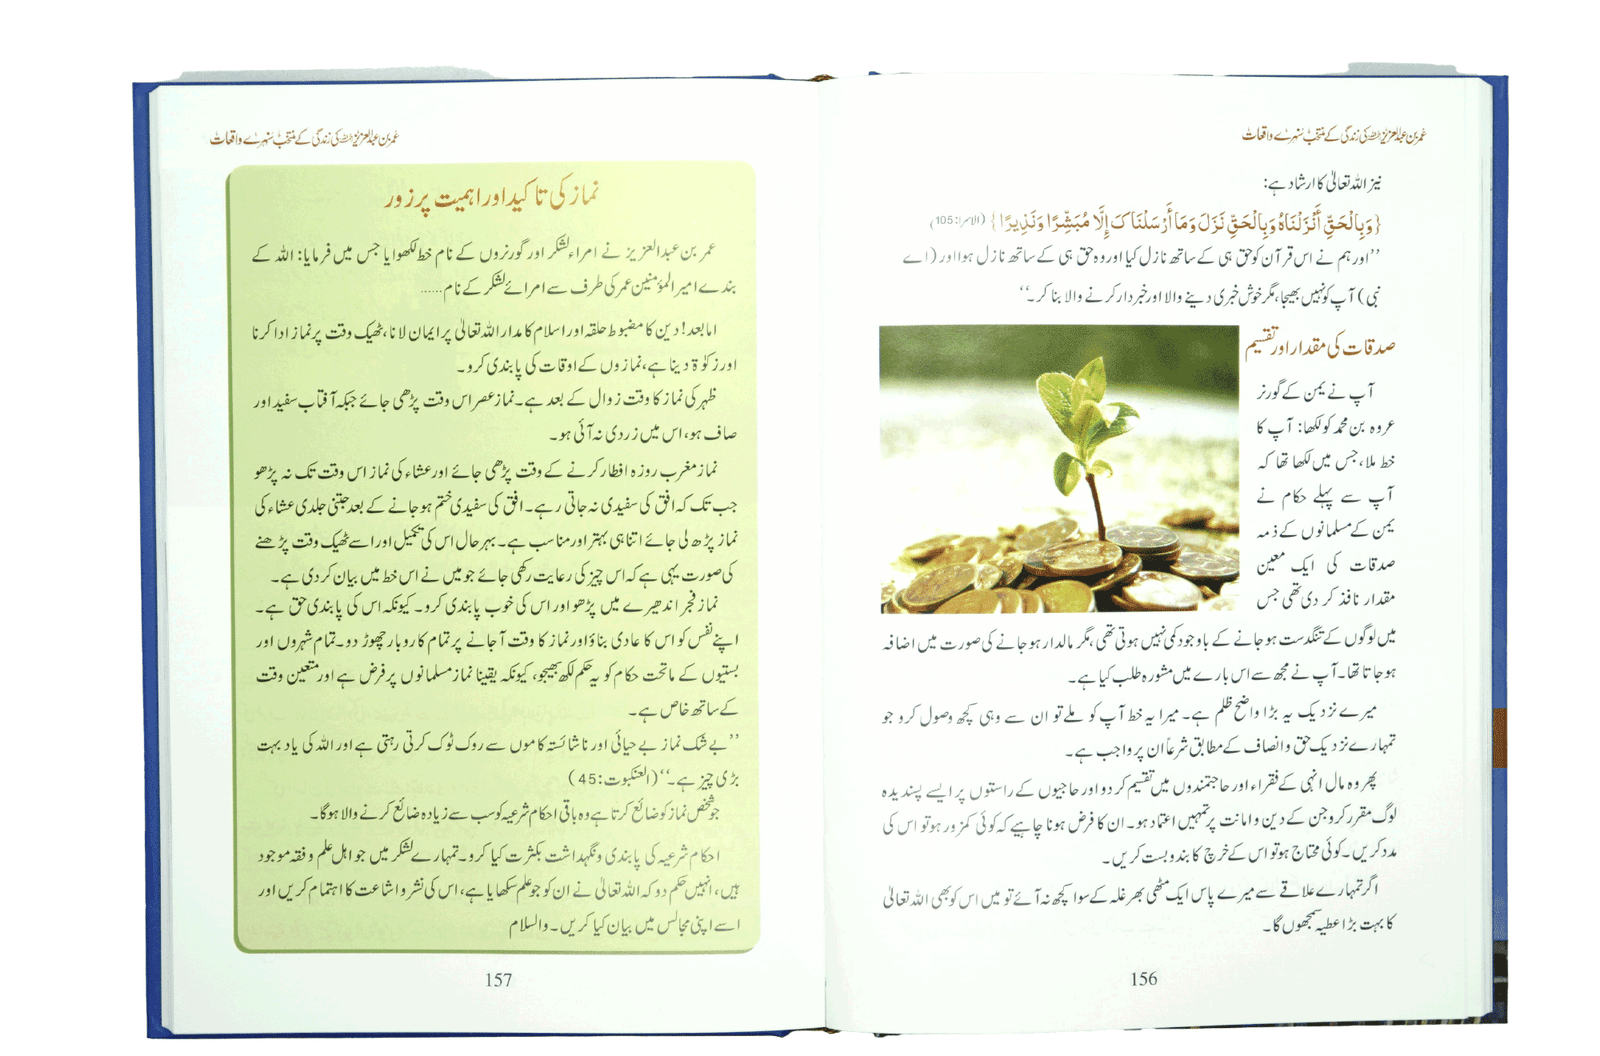 عمر بن عبدالعزیز رحمہ اللہ کی زندگی کے منتخب سنہرے واقعات
نیز اللہ تعالیٰ کا ارشاد ہے:
{وَبِالْحَقِّ أَنْزَلْنَاهُ وَبِالْحَقِّ نَزَلَ وَمَا أَرْسَلْنَاکَ إِلَّا مُبَشِّرًا وَنَذِیرًا} (الاسرا:105)
’’اور ہم نے اس قرآن کو حق ہی کے ساتھ نازل کیا اور وہ حق ہی کے ساتھ نازل ہوا اور (اے
نبی) آپ کو نہیں بھیجا، مگر خوش خبری دینے والا اور خبردار کرنے والا بنا کر۔‘‘
صدقات کی مقدار اور تقسیم
آپ نے یمن کے گورنر
عروہ بن محمد کو لکھا: آپ کا
خط ملا، جس میں لکھا تھا کہ
آپ سے پہلے حکام نے
یمن کے مسلمانوں کے ذمہ
صدقات کی ایک معین
مقدار نافذ کر دی تھی جس
میں لوگوں کے تنگدست ہو جانے کے باوجود کمی نہیں ہوتی تھی، مگر مالدار ہو جانے کی صورت میں اضافہ
ہو جاتا تھا۔ آپ نے مجھ سے اس بارے میں مشورہ طلب کیا ہے۔
میرے نزدیک یہ بڑا واضح ظلم ہے۔ میرا یہ خط آپ کو ملے تو ان سے وہی کچھ وصول کرو جو
تمہارے نزدیک حق و انصاف کے مطابق شرعاً ان پر واجب ہے۔
پھر وہ مال انہی کے فقراء اور حاجتمندوں میں تقسیم کر دو اور حاجیوں کے راستوں پر ایسے پسندیدہ
لوگ مقرر کرو جن کے دین و امانت پر تمہیں اعتماد ہو۔ ان کا فرض ہونا چاہیے کہ کوئی کمزور ہو تو اس کی
مدد کریں۔ کوئی محتاج ہو تو اس کے خرچ کا بندوبست کریں۔
اگر تمہارے علاقے سے میرے پاس ایک مٹھی بھر غلہ کے سوا کچھ نہ آئے تو میں اس کو بھی اللہ تعالیٰ
کا بہت بڑا عطیہ سمجھوں گا۔
156
عمر بن عبدالعزیز رحمہ اللہ کی زندگی کے منتخب سنہرے واقعات
نماز کی تاکید اور اہمیت پر زور
عمر بن عبدالعزیز نے امراء لشکر اور گورنروں کے نام خط لکھوایا جس میں فرمایا: اللہ کے
بندے امیر المؤمنین عمر کی طرف سے امرائے لشکر کے نام......
اما بعد! دین کا مضبوط حلقہ اور اسلام کا مدار اللہ تعالیٰ پر ایمان لانا، ٹھیک وقت پر نماز ادا کرنا
اور زکوٰۃ دینا ہے، نمازوں کے اوقات کی پابندی کرو۔
ظہر کی نماز کا وقت زوال کے بعد ہے۔ نماز عصر اس وقت پڑھی جائے جبکہ آفتاب سفید اور
صاف ہو، اس میں زردی نہ آئی ہو۔
نماز مغرب روزہ افطار کرنے کے وقت پڑھی جائے اور عشاء کی نماز اس وقت تک نہ پڑھو
جب تک کہ افق کی سفیدی نہ جاتی رہے۔ افق کی سفیدی ختم ہو جانے کے بعد جتنی جلدی عشاء کی
نماز پڑھ لی جائے اتنا ہی بہتر اور مناسب ہے۔ بہرحال اس کی تکمیل اور اسے ٹھیک وقت پڑھنے
کی صورت یہی ہے کہ اس چیز کی رعایت رکھی جائے جو میں نے اس خط میں بیان کر دی ہے۔
نماز فجر اندھیرے میں پڑھو اور اس کی خوب پابندی کرو۔ کیونکہ اس کی پابندی حق ہے۔
اپنے نفس کو اس کا عادی بناؤ اور نماز کا وقت آ جانے پر تمام کاروبار چھوڑ دو۔ تمام شہروں اور
بستیوں کے ماتحت حکام کو یہ حکم لکھ بھیجو، کیونکہ یقیناً نماز مسلمانوں پر فرض ہے اور متعین وقت
کے ساتھ خاص ہے۔
’’بے شک نماز بے حیائی اور ناشائستہ کاموں سے روک ٹوک کرتی رہتی ہے اور اللہ کی یاد بہت
بڑی چیز ہے۔‘‘ (العنکبوت:45)
جو شخص نماز کو ضائع کرتا ہے وہ باقی احکام شرعیہ کو سب سے زیادہ ضائع کرنے والا ہوگا۔
احکام شرعیہ کی پابندی و نگہداشت بکثرت کیا کرو۔ تمہارے لشکر میں جو اہل علم و فقہ موجود
ہیں، انہیں حکم دو کہ اللہ تعالیٰ نے ان کو جو علم سکھایا ہے، اس کی نشر و اشاعت کا اہتمام کریں اور
اسے اپنی مجالس میں بیان کیا کریں۔ والسلام
157